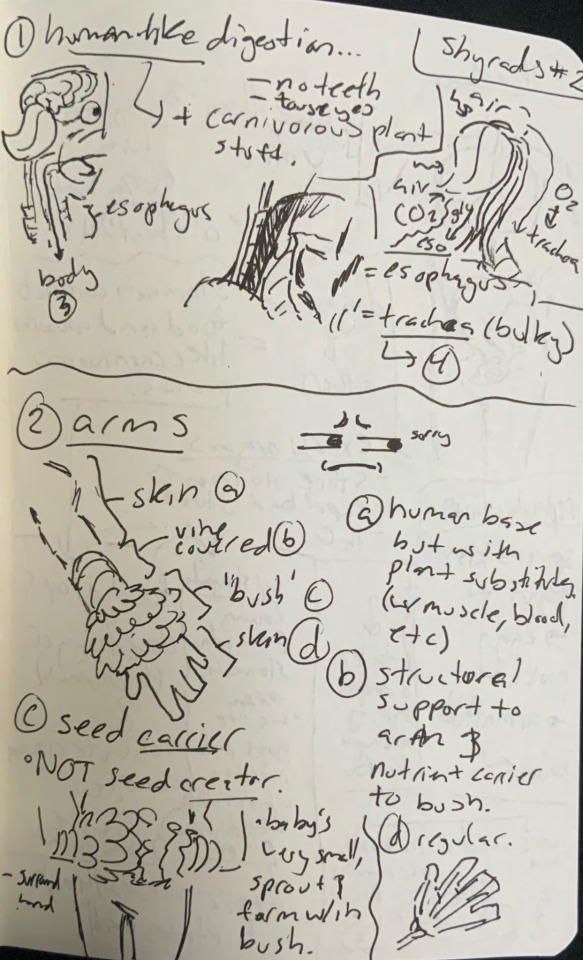 ① human-like digestion...
Shyrads #2
- no teeth
+ carnivorous plant
stuff.
esophagus
body
③
air
air
(CO2)
O2
trachea
eso
= esophagus
= trachea (bulky)
↳ ④
② arms
sorry
skin ⓐ
vine
covered ⓑ
"bush" ⓒ
skin ⓓ
ⓐ human base
but with
plant substitutes
(w/ muscle, blood,
etc)
ⓑ structural
support to
arm &
nutrient carrier
to bush.
ⓒ seed carrier
• NOT seed creator.
- surround
hand
• baby's
very small,
sprout &
form w/in
bush.
ⓓ regular.